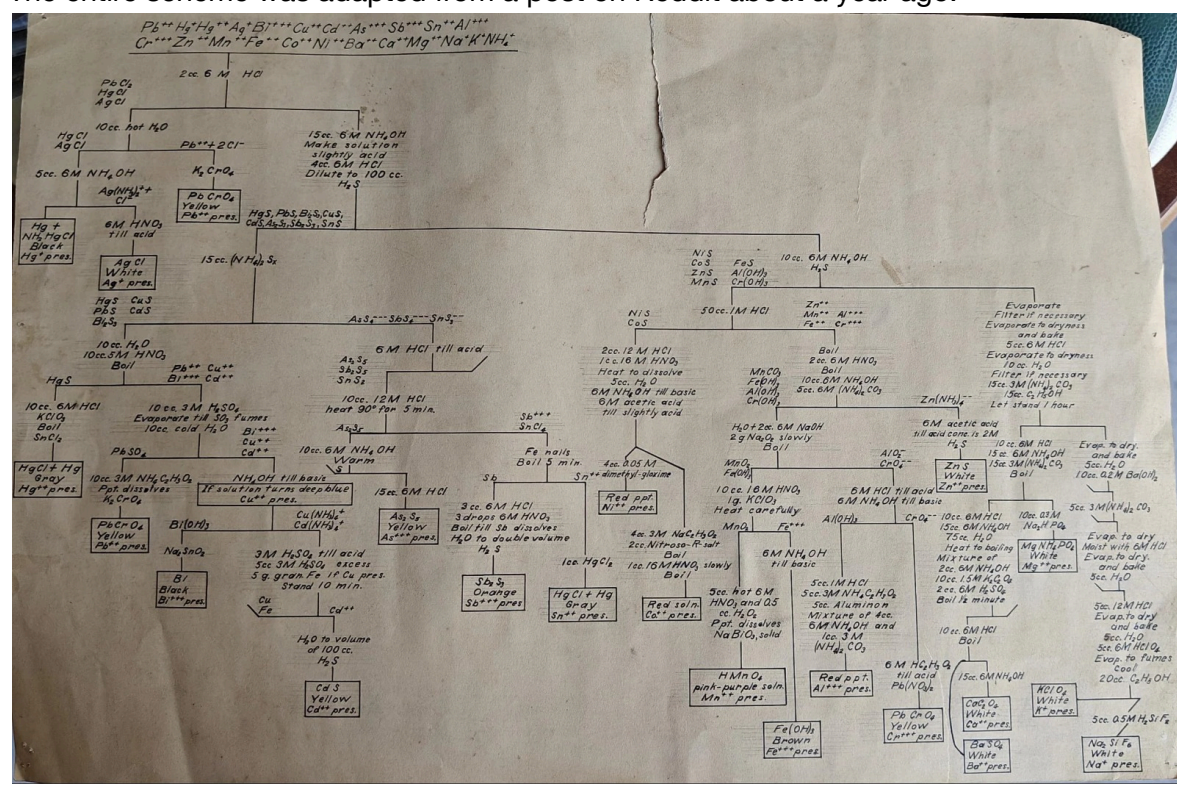 The entire scheme was adapted from a post on Reddit about a year ago.
Pb⁺⁺Hg⁺Hg⁺⁺Ag⁺Bi⁺⁺⁺Cu⁺⁺Cd⁺⁺As⁺⁺⁺Sb⁺⁺⁺Sn⁺⁺Al⁺⁺⁺
Cr⁺⁺⁺Zn⁺⁺Mn⁺⁺Fe⁺⁺Co⁺⁺Ni⁺⁺Ba⁺⁺Ca⁺⁺Mg⁺⁺Na⁺K⁺NH₄⁺
2cc. 6 M HCl
PbCl₂
HgCl
AgCl
10cc. hot H₂O
HgCl
AgCl
Pb⁺⁺+2Cl⁻
5cc. 6M NH₄OH
K₂CrO₄
Ag(NH₃)₂⁺+
Cl⁻
PbCrO₄
Yellow
Pb⁺⁺pres.
Hg +
NH₂HgCl
Black
Hg⁺pres.
6M HNO₃
till acid
AgCl
White
Ag⁺ pres.
15cc. 6M NH₄OH
Make solution
slightly acid
4cc. 6M HCl
Dilute to 100 cc.
H₂S
HgS, PbS, Bi₂S₃, CuS,
CdS, As₂S₃, Sb₂S₃, SnS
15cc. (NH₄)₂Sₓ
HgS CuS
PbS CdS
Bi₂S₃
10cc. H₂O
10cc. 5M HNO₃
Boil
HgS
Pb⁺⁺ Cu⁺⁺
Bi⁺⁺⁺ Cd⁺⁺
10cc. 6M HCl
KClO₃
Boil
SnCl₂
HgCl + Hg
Gray
Hg⁺⁺pres.
10cc. 3M H₂SO₄
Evaporate till SO₃ fumes
10cc. cold H₂O
PbSO₄
Bi⁺⁺⁺
Cu⁺⁺
Cd⁺⁺
10cc. 3M NH₄C₂H₃O₂
Ppt. dissolves
K₂CrO₄
PbCrO₄
Yellow
Pb⁺⁺pres.
NH₄OH till basic
If solution turns deep blue
Cu⁺⁺ pres.
Bi(OH)₃
Cu(NH₃)₄⁺
Cd(NH₃)₄⁺
Na₂SnO₂
Bi
Black
Bi⁺⁺⁺pres.
3M H₂SO₄ till acid
5cc. 3M H₂SO₄ excess
5 g. gran. Fe if Cu pres.
Stand 10 min.
Cu
Fe
Cd⁺⁺
H₂O to volume
of 100 cc.
H₂S
CdS
Yellow
Cd⁺⁺pres.
AsS₄⁻⁻⁻SbS₄⁻⁻⁻SnS₃⁻⁻
6M HCl till acid
As₂S₅
Sb₂S₅
SnS₂
10cc. 12M HCl
heat 90° for 5 min.
As₂S₅
Sb⁺⁺⁺
SnCl₄
10cc. 6M NH₄OH
Warm
S
15cc. 6M HCl
As₂S₅
Yellow
As⁺⁺⁺pres.
Fe nails
Boil 5 min.
Sb
Sn⁺⁺
3cc. 6M HCl
3 drops 6M HNO₃
Boil till Sb dissolves
H₂O to double volume
H₂S
Sb₂S₃
Orange
Sb⁺⁺⁺pres
1cc. HgCl₂
HgCl + Hg
Gray
Sn⁺⁺pres.
10cc. 6M NH₄OH
H₂S
NiS
CoS FeS
ZnS Al(OH)₃
MnS Cr(OH)₃
50cc. 1M HCl
NiS
CoS
Zn⁺⁺
Mn⁺⁺ Al⁺⁺⁺
Fe⁺⁺ Cr⁺⁺⁺
2cc. 12M HCl
1cc. 16M HNO₃
Heat to dissolve
5cc. H₂O
6M NH₄OH till basic
6M acetic acid
till slightly acid
4cc. 0.05 M
dimethyl-glioxime
Red ppt.
Ni⁺⁺ pres.
4cc. 3M NaC₂H₃O₂
2cc. Nitroso-R-salt
Boil
1cc. 16M HNO₃ slowly
Boil
Red soln.
Co⁺⁺pres.
Boil
2cc. 6M HNO₃
Boil
10cc. 6M NH₄OH
5cc. 6M (NH₄)₂CO₃
MnCO₃
Fe(OH)₃
Al(OH)₃
Cr(OH)₃
Zn(NH₃)₄⁻⁻
6M acetic acid
till acid conc. is 2M
H₂S
ZnS
White
Zn⁺⁺pres.
H₂O+2cc. 6M NaOH
2g Na₂O₂ slowly
Boil
MnO₂
Fe(OH)₃
AlO₂⁻
CrO₄⁻⁻
10cc. 16M HNO₃
1g. KClO₃
Heat carefully
MnO₂
Fe⁺⁺⁺
5cc. hot 6M
HNO₃ and 0.5
cc. H₂O₂
Ppt. dissolves
NaBiO₃, solid
HMnO₄
pink-purple soln.
Mn⁺⁺ pres.
6M NH₄OH
till basic
Fe(OH)₃
Brown
Fe⁺⁺⁺pres
6M HCl till acid
6M NH₄OH till basic
Al(OH)₃
CrO₄⁻⁻
5cc. 1M HCl
5cc. 3M NH₄C₂H₃O₂
5cc. Aluminon
Mixture of 4cc.
6M NH₄OH and
1cc. 3 M
(NH₄)₂CO₃
Red ppt.
Al⁺⁺⁺pres.
6 M HC₂H₃O₂
till acid
Pb(NO₃)₂
PbCrO₄
Yellow
Cr⁺⁺⁺pres.
Evaporate
Filter if necessary
Evaporate to dryness
and bake
5cc. 6M HCl
Evaporate to dryness
10cc. H₂O
Filter if necessary
15cc. 3M (NH₄)₂CO₃
15cc. C₂H₅OH
Let stand 1 hour
10cc. 6M HCl
15cc. 6M NH₄OH
15cc. 3M (NH₄)₂CO₃
Boil
10cc. 6M HCl
15cc. 6M NH₄OH
75cc. H₂O
Heat to boiling
Mixture of
2cc. 6M NH₄OH
10cc. 1.5M K₂C₂O₄
2cc. 6M H₂SO₄
Boil ½ minute
10cc. 0.3M
Na₂HPO₄
MgNH₄PO₄
White
Mg⁺⁺pres.
10cc. 6M HCl
Boil
15cc. 6M NH₄OH
CaC₂O₄
White
Ca⁺⁺pres.
BaSO₄
White
Ba⁺⁺pres.
Evap. to dry.
and bake
5cc. H₂O
10cc. 0.2M Ba(OH)₂
5cc. 3M (NH₄)₂CO₃
Evap. to dry
Moist with 6M HCl
Evap. to dry.
and bake
5cc. H₂O
5cc. 12M HCl
Evap. to dry
and bake
5cc. H₂O
5cc. 6M HClO₄
Evap. to fumes
Cool
20cc. C₂H₅OH
KClO₄
White
K⁺pres.
5cc. 0.5M H₂SiF₆
Na₂SiF₆
White
Na⁺ pres.